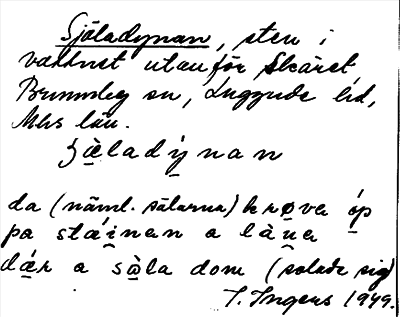 Själadynan, sten i
vattnet utanför Skäret
Brunnby sn, Luggude hd,
Mhs län.
sæ̀ladýnan
da (näml. sälarna) krøva óp
pa stáinen a làua
dær a sòla dom (solade sig)
I. Ingers 1949.